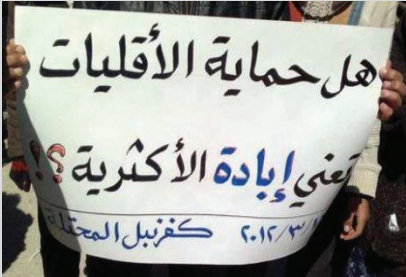 هل حماية الأقليات
تعني إبادة الأكثرية ؟!
كفرنبل المحتلة ٢٠١٢/٣/